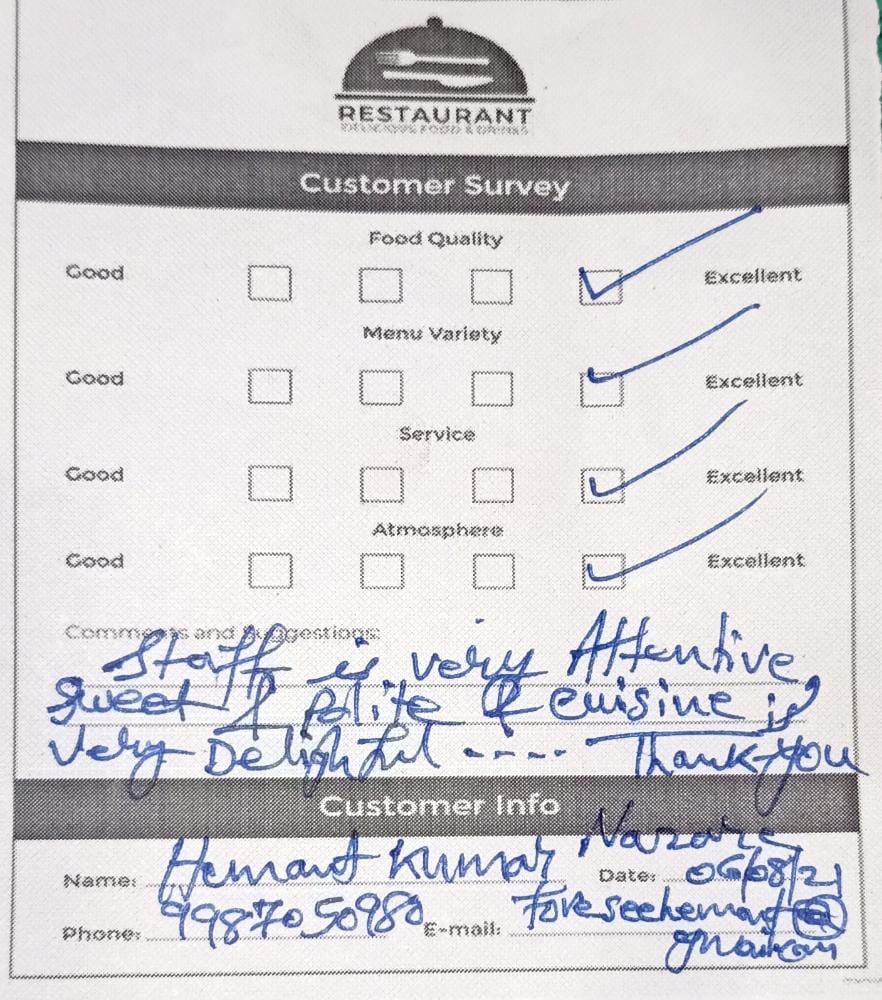 RESTAURANT
DELICIOUS FOOD & DRINKS
Customer Survey
Food Quality
Good Excellent
Menu Variety
Good Excellent
Service
Good Excellent
Atmosphere
Good Excellent
Comments and Suggestions:
Staff is very Attentive
Sweet & Polite & cuisine is
Very Delightful ---- Thank you
Customer Info
Name: Hemant Kumar Date: 06/08/21
Phone: 9987050980 E-mail: Foreseehemant@
gmail.com